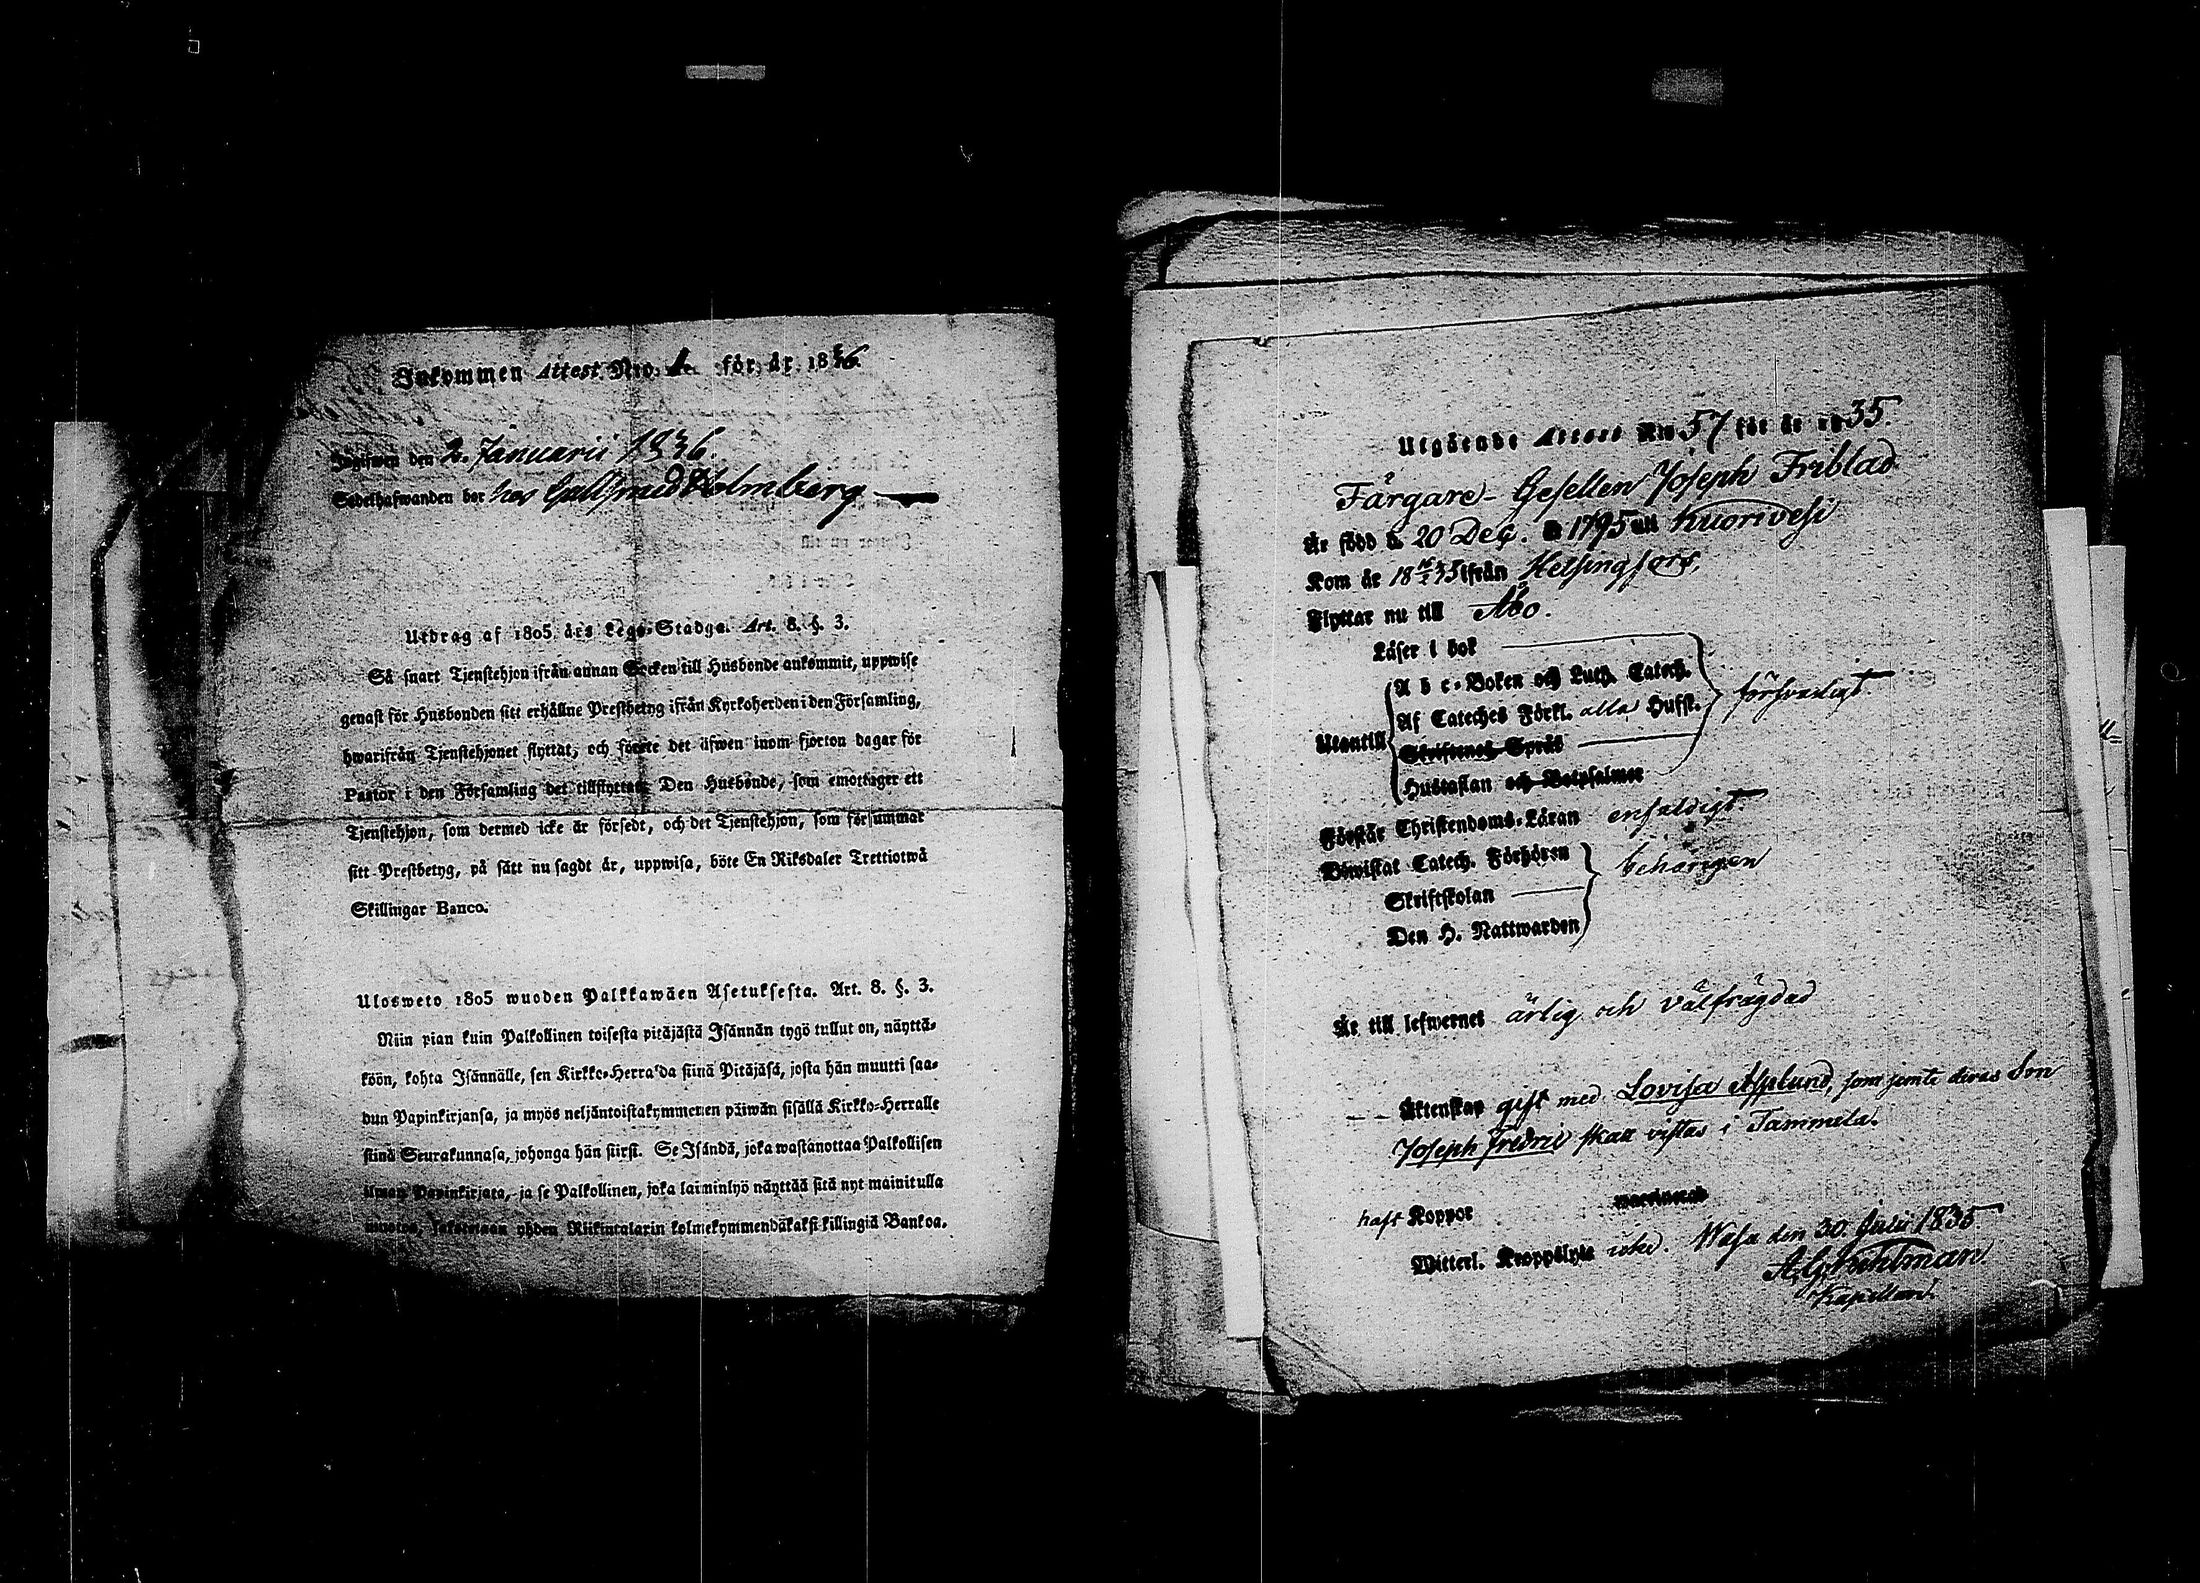 Inkommen Attest Nro. 1. för år 1836.
Ingifwen den 2. Januarii 1836.
Sedelhafwanden bor hos Gullsmed Holmberg
Utdrag af 1805 års Lego-Stadga. Art. 8. §. 3.
Så snart Tjenstehjon ifrån annan Socken till Husbonde ankommit, uppwise
genast för Husbonden sitt erhållne Prestbetyg ifrån Kyrkoherden i den Församling,
hwarifrån Tjenstehjonet flyttat, och förete det äfwen inom fjorton dagar för
Pastor i den Församling det tillflyttat. Den Husbonde, som emottager ett
Tjenstehjon, som dermed icke är försedt, och det Tjenstehjon, som försummar
sitt Prestbetyg, på sätt nu sagdt är, uppwisa, böte En Riksdaler Trettiotwå
Skillingar Banco.
Ulosweto 1805 wuoden Palkkawäen Asetuksesta. Art. 8. §. 3.
Niin pian kuin Palkollinen toisesta pitäjästä Isännän tygö tullut on, näyttä-
köön, kohta Isännälle, sen Kirkko-Herra'da siinä Pitäjäsä, josta hän muutti saa-
dun Papinkirjansa, ja myös neljäntoistakymmenen päiwän sisällä Kirkko-Herralle
siinä Seurakunnasa, johonga hän siirsi. Se Isändä, joka wastanottaa Palkollisen
ilman Papinkirjata, ja se Palkollinen, joka laiminlyö näyttää sitä nyt mainitulla
muotoa, sakotetaan yhden Riikintalarin kolmekymmendäkaksi killingiä Bankoa.
Utgående Attest Nro 57 för år 1835.
Färgare-Gesellen Joseph Friblad
Är född d. 20 Dec. å 1795 uti Kuorivesi
Kom år 1835 ifrån Helsingfors,
Flyttar nu till Åbo.
Läser i bok
Utantill
A b c-Boken och Luth. Catech.
Af Cateches Förkl. alla Hufst.
försvarligt
Skriftenes Språk
Hustaflan och Botpsalmer
Förstår Christendoms-Läran enfaldigt
Bewistat Catech. Förhören
behörigen
Skriftskolan
Den H. Nattwarden
Är till lefwernet ärlig och välfrägdad
Äktenskap gift med Lovisa Asplund, som jemte deras Son
Joseph Fredric skall vistas i Tammela.
haft Koppor vaccinerad
Witterl. Kroppslyte icke. Wasa den 30. Junii 1835
Kapellan.